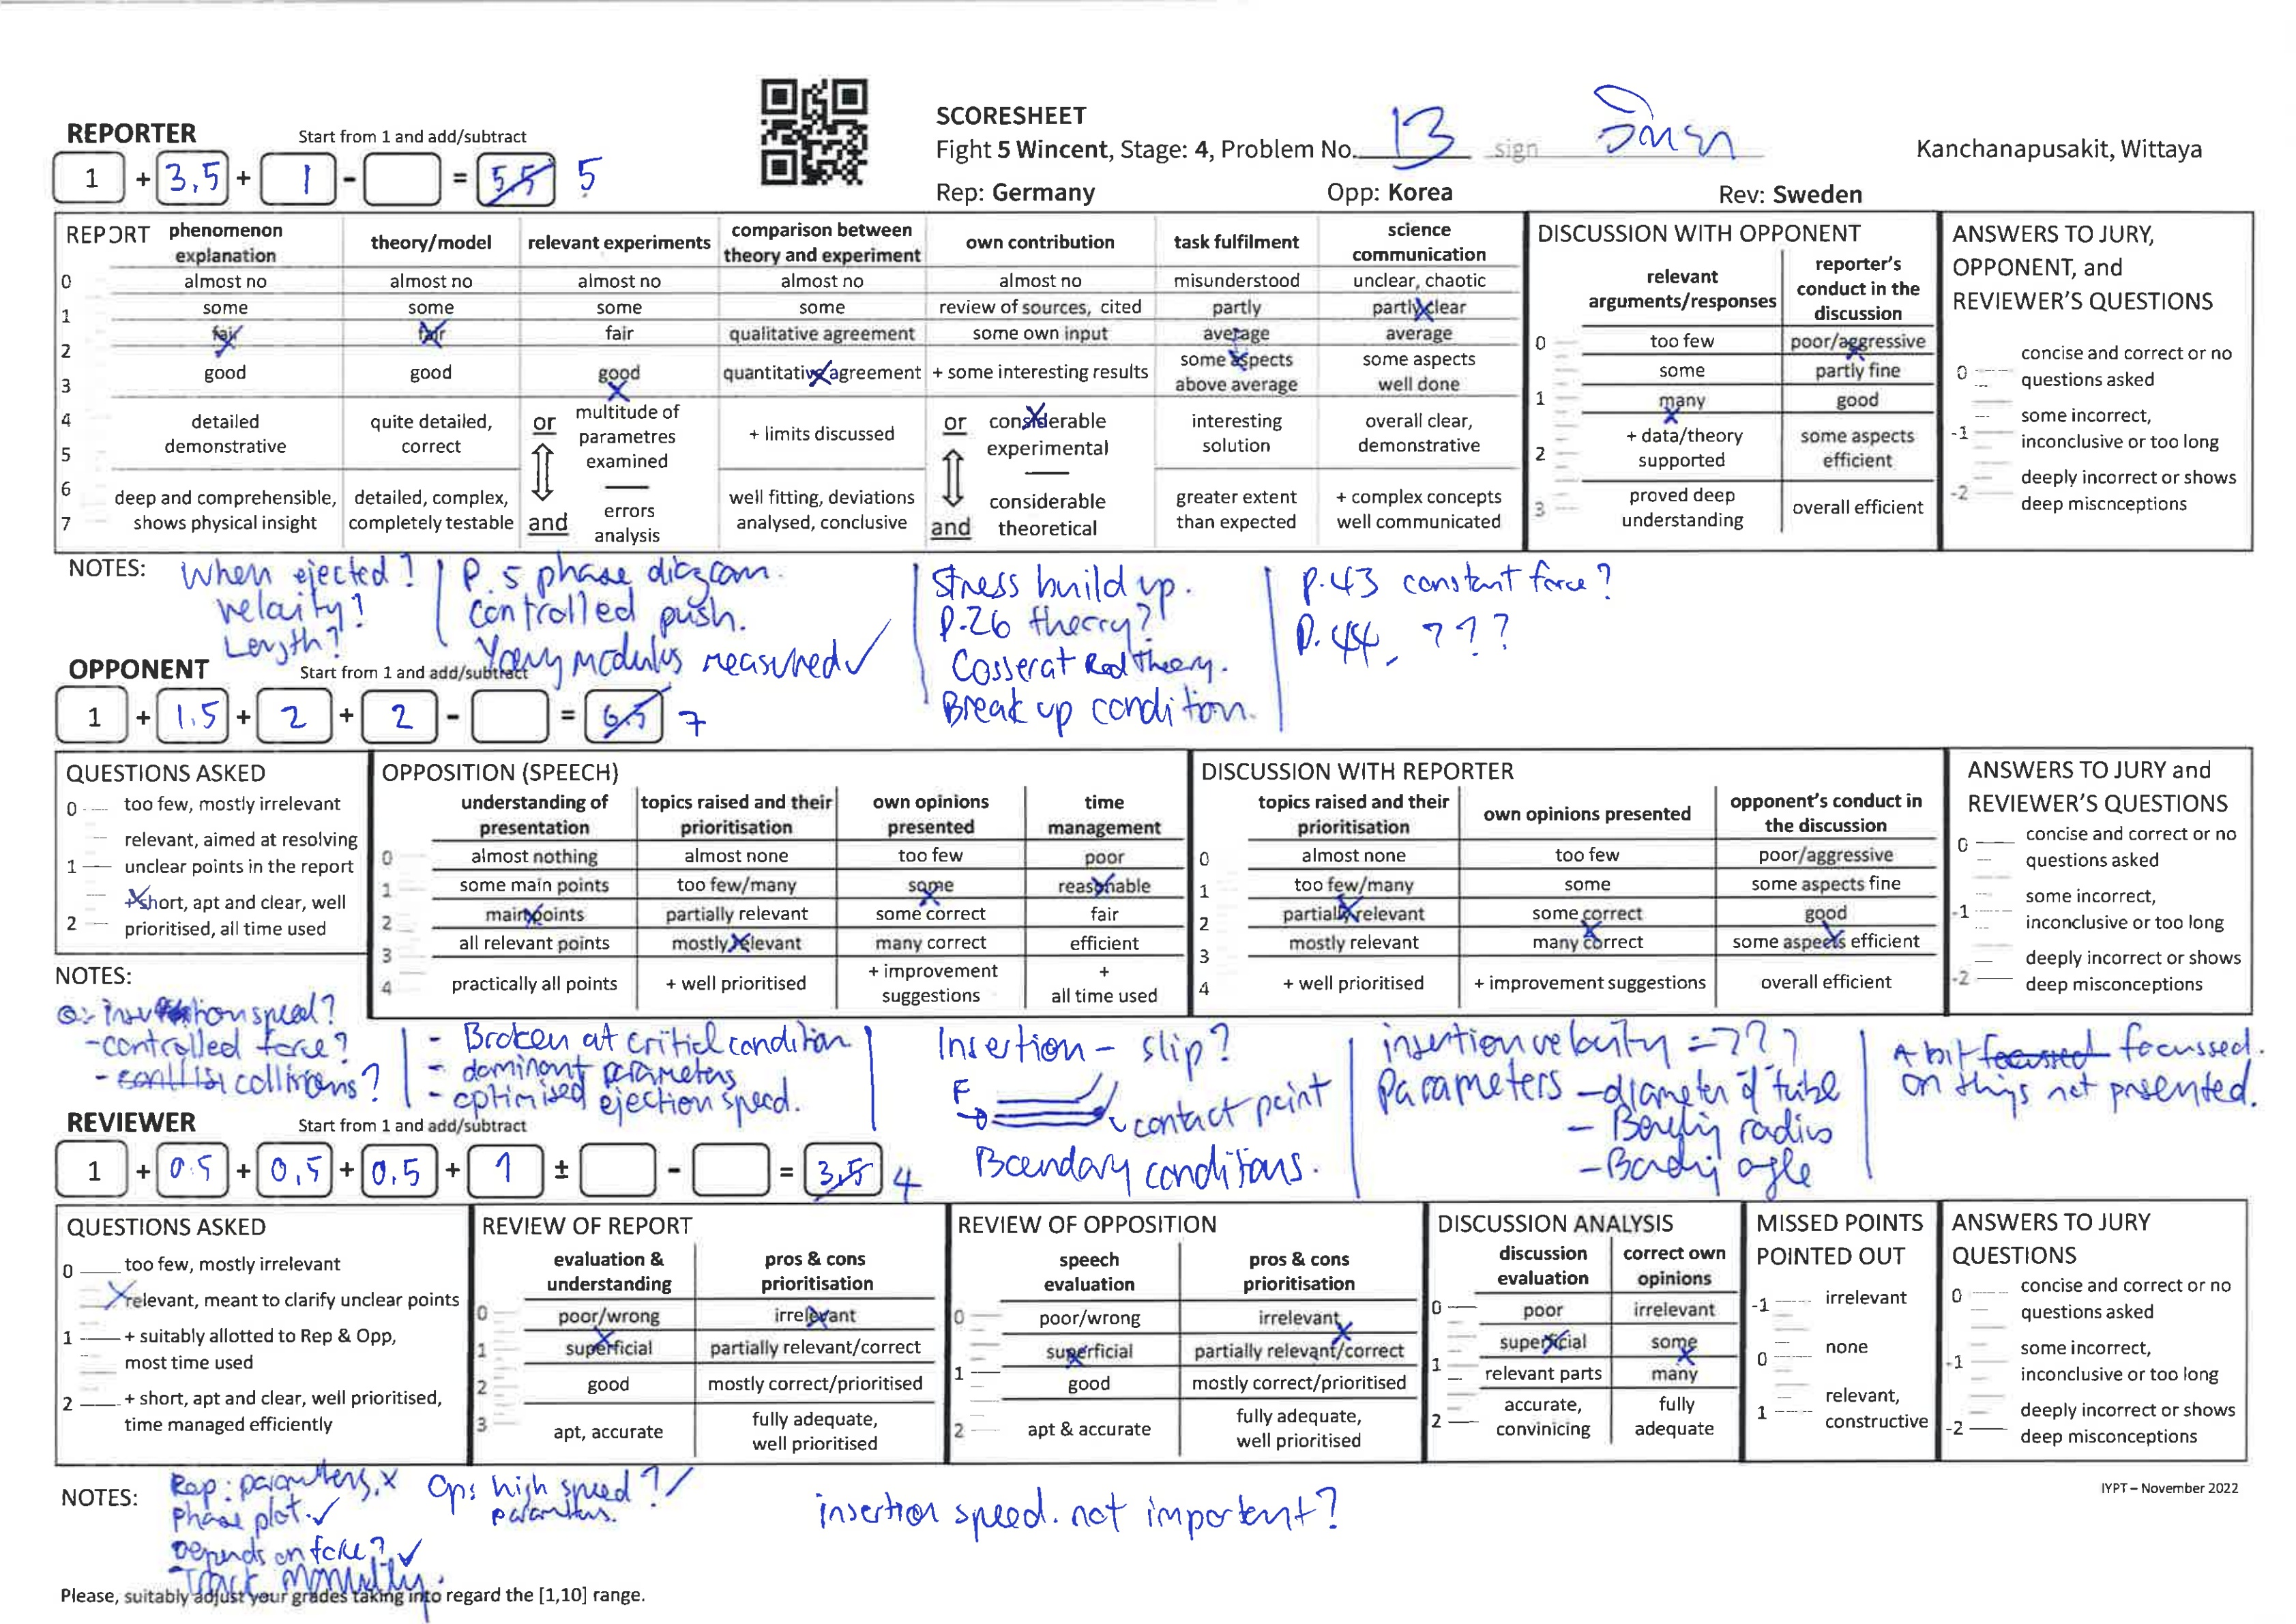 REPORTER Start from 1 and add/subtract
1 + 3,5 + 1 - = 5,5 5
SCORESHEET
Fight 5 Wincent, Stage: 4, Problem No. 13 sign
Kanchanapusakit, Wittaya
Rep: Germany Opp: Korea Rev: Sweden
REPORT
phenomenon explanation theory/model relevant experiments comparison between theory and experiment own contribution task fulfilment science communication
0 almost no almost no almost no almost no almost no misunderstood unclear, chaotic
1 some some some some review of sources, cited partly partly clear
2 fair fair fair qualitative agreement some own input average average
3 good good good quantitative agreement + some interesting results some aspects above average some aspects well done
4 5 detailed demonstrative quite detailed, correct or multitude of parametres examined + limits discussed or considerable experimental interesting solution overall clear, demonstrative
6 7 deep and comprehensible, shows physical insight detailed, complex, completely testable and errors analysis well fitting, deviations analysed, conclusive and considerable theoretical greater extent than expected + complex concepts well communicated
DISCUSSION WITH OPPONENT
relevant arguments/responses reporter's conduct in the discussion
0 too few poor/aggressive
some partly fine
1 many good
2 + data/theory supported some aspects efficient
3 proved deep understanding overall efficient
ANSWERS TO JURY, OPPONENT, and REVIEWER'S QUESTIONS
0 concise and correct or no questions asked
-1 some incorrect, inconclusive or too long
-2 deeply incorrect or shows deep miscnceptions
NOTES:
When ejected?
velocity?
Length?
P. 5 phase diagram.
controlled push.
Young modulus measured ✓
Stress build up.
P.26 theory?
Cosserat Rod Theory.
Break up condition.
P.43 constant force?
P.44, ???
OPPONENT Start from 1 and add/subtract
1 + 1.5 + 2 + 2 - = 6.5 7
QUESTIONS ASKED
0 too few, mostly irrelevant
1 relevant, aimed at resolving unclear points in the report
2 +short, apt and clear, well prioritised, all time used
OPPOSITION (SPEECH)
understanding of presentation topics raised and their prioritisation own opinions presented time management
0 almost nothing almost none too few poor
1 some main points too few/many some reasonable
2 main points partially relevant some correct fair
3 all relevant points mostly relevant many correct efficient
4 practically all points + well prioritised + improvement suggestions + all time used
DISCUSSION WITH REPORTER
topics raised and their prioritisation own opinions presented opponent's conduct in the discussion
0 almost none too few poor/aggressive
1 too few/many some some aspects fine
2 partially relevant some correct good
3 mostly relevant many correct some aspects efficient
4 + well prioritised + improvement suggestions overall efficient
ANSWERS TO JURY and REVIEWER'S QUESTIONS
0 concise and correct or no questions asked
-1 some incorrect, inconclusive or too long
-2 deeply incorrect or shows deep misconceptions
NOTES:
-controlled force?
collisions?
- Broken at critical condition
- dominant parameters
- optimised ejection speed.
Insertion - slip?
F
contact point
Boundary conditions.
insertion velocity = ???
Parameters - diameter of tube
- Bending radius
- Bending angle
A bit focussed focussed.
on things not presented.
REVIEWER Start from 1 and add/subtract
1 + 0.5 + 0,5 + 0,5 + 1 ± - = 3,5 4
QUESTIONS ASKED
0 too few, mostly irrelevant
relevant, meant to clarify unclear points
1 + suitably allotted to Rep & Opp, most time used
2 + short, apt and clear, well prioritised, time managed efficiently
REVIEW OF REPORT
evaluation & understanding pros & cons prioritisation
0 poor/wrong irrelevant
1 superficial partially relevant/correct
2 good mostly correct/prioritised
3 apt, accurate fully adequate, well prioritised
REVIEW OF OPPOSITION
speech evaluation pros & cons prioritisation
0 poor/wrong irrelevant
superficial partially relevant/correct
1 good mostly correct/prioritised
2 apt & accurate fully adequate, well prioritised
DISCUSSION ANALYSIS
discussion evaluation correct own opinions
0 poor irrelevant
superficial some
1 relevant parts many
2 accurate, convinicing fully adequate
MISSED POINTS POINTED OUT
-1 irrelevant
0 none
1 relevant, constructive
ANSWERS TO JURY QUESTIONS
0 concise and correct or no questions asked
-1 some incorrect, inconclusive or too long
-2 deeply incorrect or shows deep misconceptions
NOTES:
Rep: parameters, x
Phase plot. ✓
Depends on force? ✓
- Track manually.
Opp: high speed? ✓
parameters.
insertion speed. not important?
IYPT – November 2022
Please, suitably adjust your grades taking into regard the [1,10] range.